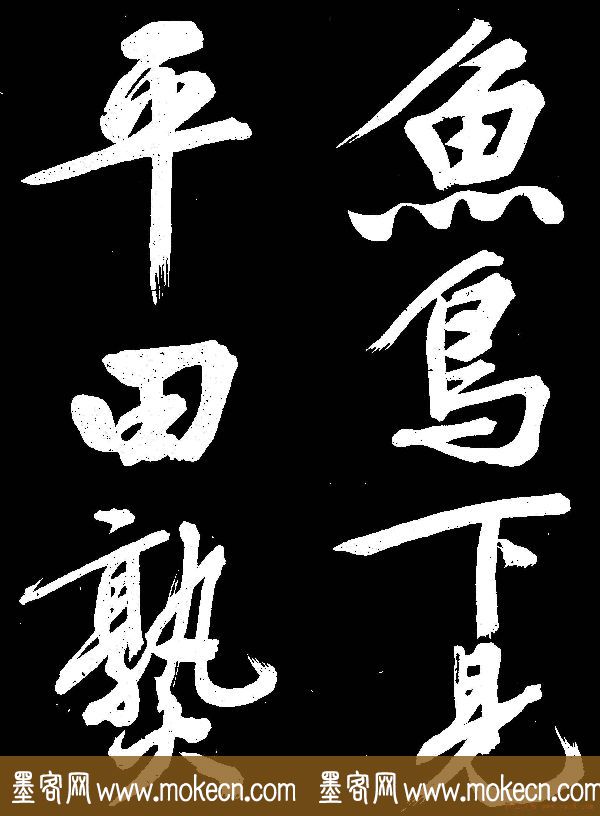 魚鳥下見
平田熟
墨客网 www.mokecn.com 墨客网 www.mokecn.com